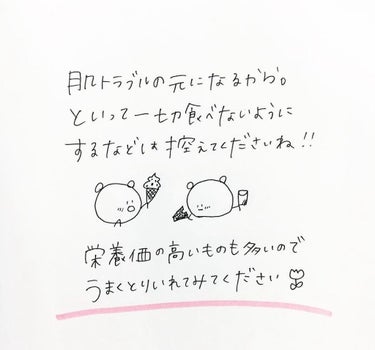 肌トラブルの元になるから。
といって一切食べないように
するなどは控えてくださいね!!
栄養価の高いものも多いので
うまくとりいれてみてください